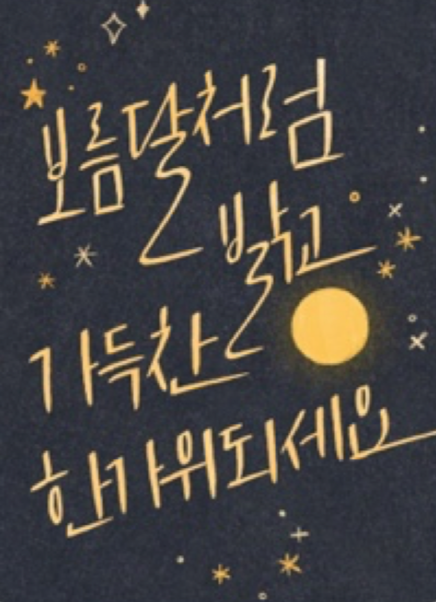 보름달처럼
밝고
가득찬
한가위되세요